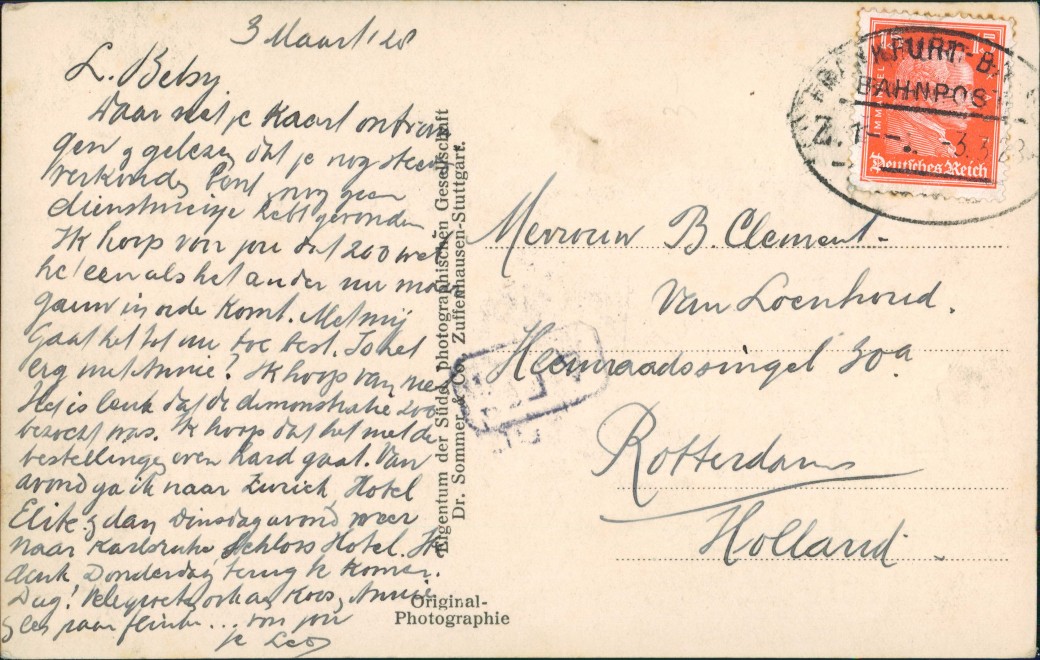 3 Maart '28
L. Betsy.
Daar net je Kaart ontvan
gen & gelezen dat je nog steeds
verkouden bent, nog geen
dienstmeisje hebt gevonden
Ik hoop voor jou dat zoo wel
het een als het ander nu maar
gauw in orde komt. Met mij
Gaat het tot nu toe best. Is het
erg met Annie? Ik hoop van nee
Het is leuk dat de demonstratie zoo
bezocht was. Ik hoop dat het met de
bestellingen even hard gaat. Van
avond ga ik naar Zurich, Hotel
Elite & dan Dinsdagavond weer
naar Karlsruhe Schloss Hotel. Ik
denk Donderdag terug te komen.
Dag! Vele groeten ook aan Koos, Annie
& een paar flinke ... van jou
je Leo
Eigentum der Südd. photographischen Gesellschaft
Dr. Sommer & Co. Zuffenhausen-Stuttgart.
Original-
Photographie
15 15
Deutsches Reich
FRANKFURT-BA
BAHNPOST
Z. 1 -3.3.28
Mevrouw B. Clement-
Van Loenhoud.
Heemraadssingel 30a.
Rotterdam
Holland.